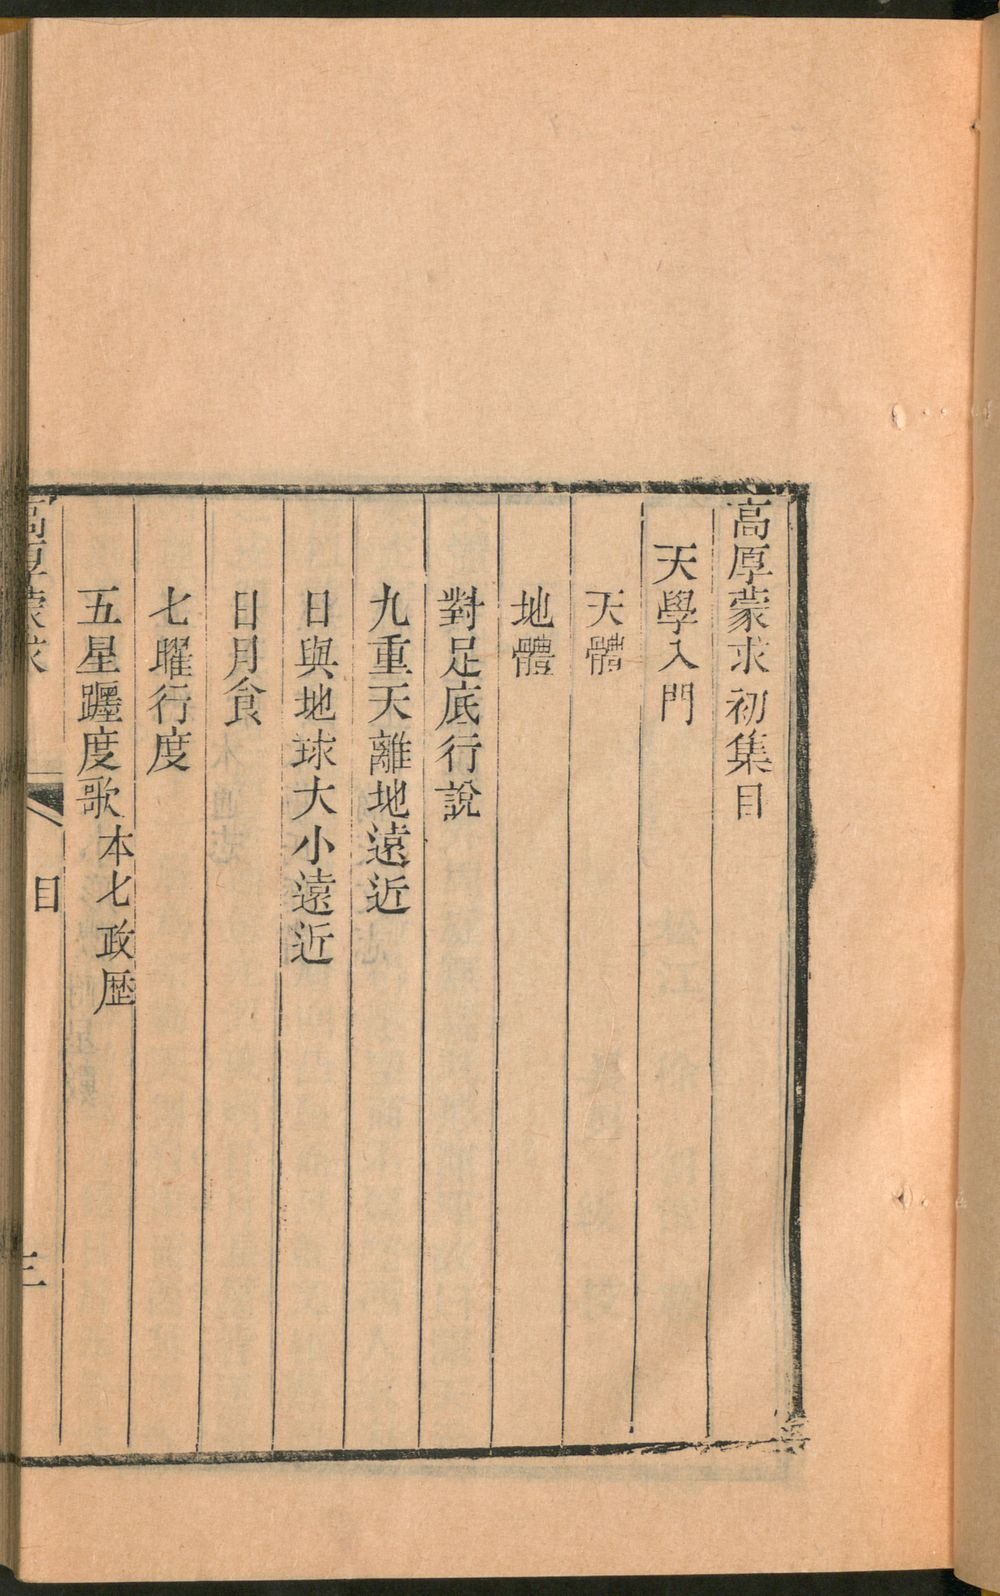 高厚蒙求初集目
天學入門
天體
地體
對足底行說
九重天離地遠近
日與地球大小遠近
日月食
七曜行度
五星躔度歌本七政歷
高厚蒙求
目
三